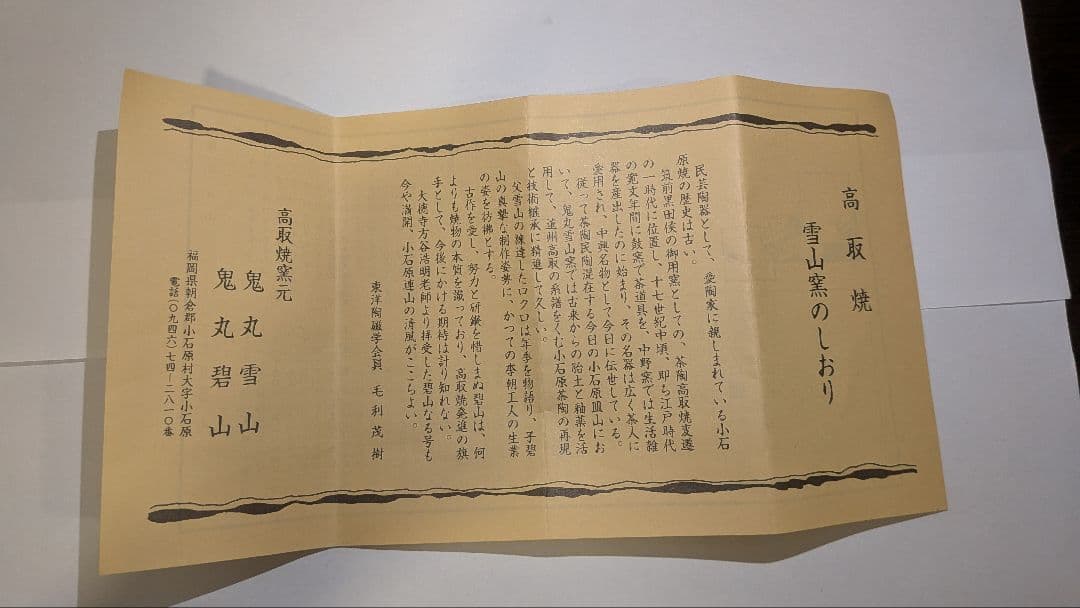 高取焼
雪山窯のしおり
民芸陶器として、愛陶家に親しまれている小石
原焼の歴史は古い。
筑前黒田侯の御用窯としての、茶陶高取焼変遷
の一時代に位置し、十七世紀中頃、即ち江戸時代
の寛文年間に鼓窯で茶道具を、中野窯では生活雑
器を産出したのに始まり、その名器は広く茶人に
愛用され、中興名物として今日に伝世している。
従って茶陶民陶混在する今日の小石原皿山にお
いて、鬼丸雪山窯では古来からの胎土と釉薬を活
用して、遠州高取の系譜をくむ小石原茶陶の再現
と技術継承に精進して久しい。
父雪山の練達したロクロは年季を物語り、子碧
山の真摯な制作姿勢に、かつての李朝工人の生業
の姿を彷彿とする。
古作を愛し、努力と研鑚を惜しまぬ碧山は、何
よりも焼物の本質を識っており、高取焼発進の旗
手として、今後にかける期待は計り知れない。
大徳寺方谷浩明老師より拝受した碧山なる号も
今や満開、小石原連山の清風がここちよい。
東洋陶磁学会員 毛利茂樹
高取焼窯元
鬼丸雪山
鬼丸碧山
福岡県朝倉郡小石原村大字小石原
電話(〇九四六)七四-二八一〇番